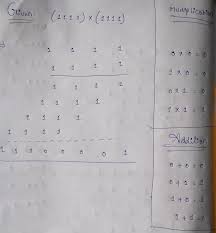 Given: (1111) × (1111)
1 1 1 1
1 1 1 1
1 1 1 1
1 1 1 1
1 1 1 1
1 1 1 1
1 1 1 0 0 0 0 1
0 × 0 = 0
1 × 0 =
0 × 1 =
1 × 1 =
Addition
0 + 0 =
0 + 1 =
1 + 0 =
1 + 1 =